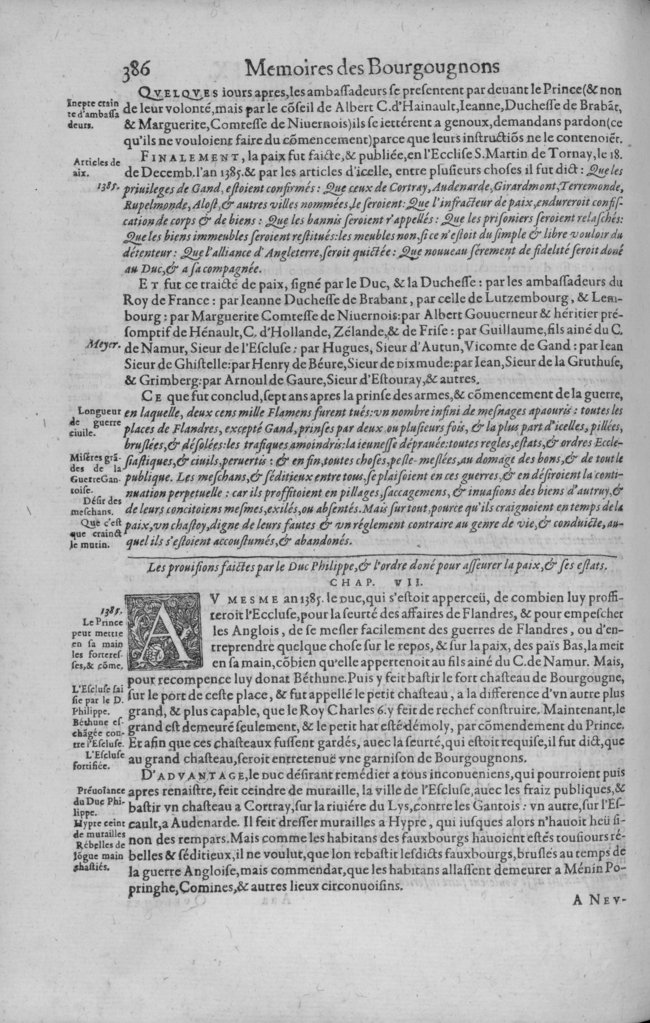 386 Memoires des Bourgougnons
QVELQVES iours apres, les ambaſſadeurs ſe preſentent par deuant le Prince (& non
de leur volonté, mais par le cõſeil de Albert C. d'Hainault, Ieanne, Ducheſſe de Brabãt,
& Marguerite, Comteſſe de Niuernois) ils ſe iettérent a genoux, demandans pardon (ce
qu'ils ne vouloient faire du cõmencement) parce que leurs inſtructiõs ne le contenoiẽt.
Inepte crain
te d'ambaſſa
deurs.
FINALEMENT, la paix fut faicte, & publiée, en l'Eccliſe S. Martin de Tornay, le 18.
de Decemb. l'an 1385. & par les articles d'icelle, entre pluſieurs choſes il fut dict: Que les
priuileges de Gand, eſtoient confirmés: Que ceux de Cortray, Audenarde, Girardmont, Terremonde,
Rupelmonde, Aloſt, & autres villes nommées, le ſeroient: Que l'infracteur de paix, endureroit confiſ-
cation de corps & de biens: Que les bannis ſeroient r'appellés: Que les priſoniers ſeroient relaſchés:
Que les biens immeubles ſeroient reſtitués: les meubles non, ſi ce n'eſtoit du ſimple & libre vouloir du
détenteur: Que l'alliance d'Angleterre, ſeroit quictée: Que nouueau ſérement de fidelité ſeroit doné
au Duc, & a ſa compagnée.
Articles de
aix.
1385.
ET fut ce traicté de paix, ſigné par le Duc, & la Ducheſſe: par les ambaſſadeurs du
Roy de France: par Ieanne Ducheſſe de Brabant, par celle de Lutzembourg, & Lem-
bourg: par Marguerite Comteſſe de Niuernois: par Albert Gouuerneur & héritier pré-
ſomptif de Hénault, C. d'Hollande, Zélande, & de Friſe: par Guillaume, fils ainé du C.
de Namur, Sieur de l'Eſcluſe: par Hugues, Sieur d'Autun, Vicomte de Gand: par Iean
Sieur de Ghiſtelle: par Henry de Béure, Sieur de DIXmude: par Iean, Sieur de la Gruthuſe,
& Grimberg: par Arnoul de Gaure, Sieur d'Eſtouray, & autres.
Meyer.
CE que fut conclud, ſept ans apres la prinſe des armes, & cõmencement de la guerre,
en laquelle, deux cens mille Flamens furent tués: vn nombre infini de meſnages apaouris: toutes les
places de Flandres, excepté Gand, prinſes par deux ou pluſieurs fois, & la plus part d'icelles, pillées,
bruſlées, & déſolées: les trafiques amoindris: la ieuneſſe déprauée: toutes regles, eſtats, & ordres Eccle-
ſiaſtiques, & ciuils, peruertis: & en fin, toutes choſes, peſle-meſlées, au domage des bons, & de tout le
publique. Les meſchans, & ſéditieux entre tous, ſe plaiſoient en ces guerres, & en déſiroient la conti-
nuation perpetuelle: car ils proffitoient en pillages, ſaccagemens, & inuaſions des biens d'autruy, &
de leurs concitoiens meſmes, exilés, ou abſentés. Mais ſur tout, pource qu'ils craignoient en temps de la
paix, vn chaſtoy, digne de leurs fautes & vn réglement contraire au genre de vie, & conduicte, au-
quel ils s'eſtoient accouſtumés, & abandonés.
Longueur
de guerre
ciuile.
Miſéres grã-
des de la
Guerre Gan-
toiſe.
Déſir des
meſchans.
Que c'eſt
que crainct
le mutin.
Les prouiſions faictes par le Duc Philippe, & l'ordre doné pour aſſeurer la paix, & ſes eſtats.
CHAP. VII.
AV MESME an 1385. le Duc, qui s'eſtoit apperceü, de combien luy proffi-
teroit l'Eccluſe, pour la ſeurté des affaires de Flandres, & pour empeſcher
les Anglois, de ſe meſler facilement des guerres de Flandres, ou d'en-
treprendre quelque choſe ſur le repos, & ſur la paix, des païs Bas, la meit
en ſa main, cõbien qu'elle appertenoit au fils ainé du C. de Namur. Mais,
pour recompence luy donat Béthune. Puis y feit baſtir le fort chaſteau de Bourgougne,
ſur le port de ceſte place, & fut appellé le petit chaſteau, a la difference d'vn autre plus
grand, & plus capable, que le Roy Charles 6. y feit de rechef conſtruire. Maintenant, le
grand eſt demeuré ſeulement, & le petit hat eſté démoly, par cõmendement du Prince.
Et afin que ces chaſteaux fuſſent gardés, auec la ſeurté, qui eſtoit requiſe, il fut dict, que
au grand chaſteau, ſeroit entretenuë vne garniſon de Bourgougnons.
1385.
Le Prince
peut mettre
en ſa main
les fortereſ-
ſes, & cõme.
L'Eſcluſe ſai
ſie par le D.
Philippe.
Béthune eſ-
chãgée con-
tre l'Eſcluſe.
L'Eſcluſe
fortifiée.
D'ADVANTAGE, le duc déſirant remédier a tous inconueniens, qui pourroient puis
apres renaiſtre, feit ceindre de muraille, la ville de l'Eſcluſe, auec les fraiz publiques, &
baſtir vn chaſteau a Cortray, ſur la riuiére du Lys, contre les Gantois: vn autre, ſur l'Eſ-
cault, a Audenarde. Il feit dreſſer murailles a Hypre, qui iuſques alors n'hauoit heü ſi-
non des rempars. Mais comme les habitans des fauxbourgs hauoient eſtés touſiours ré-
belles & ſéditieux, il ne voulut, que lon rebaſtit leſdicts fauxbourgs, bruſlés au temps de
la guerre Angloiſe, mais commendat, que les habitans allaſſent demeurer a Ménin Po-
pringhe, Comines, & autres lieux circonuoiſins.
Préuoiance
du Duc Phi-
lippe.
Hypre ceint
de murailles
Rébelles de
lõgue main
chaſtiés.
A NEV-